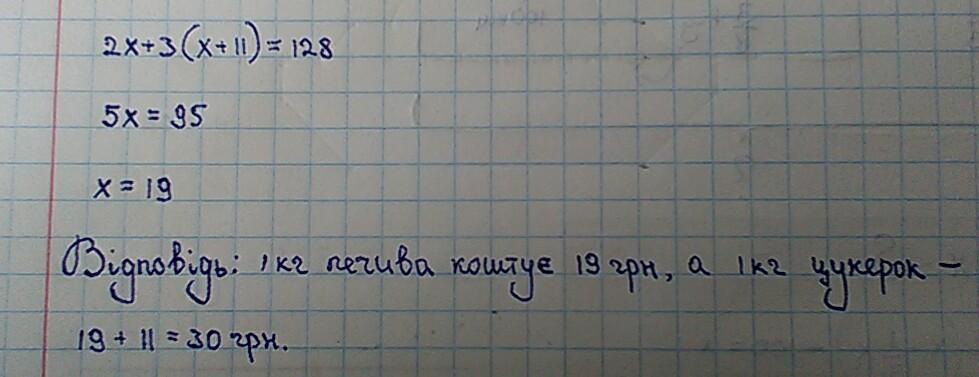 2x+3(x+11)=128
5x=95
x=19
Відповідь: 1кг печива коштує 19 грн, а 1кг цукерок –
19+11=30 грн.